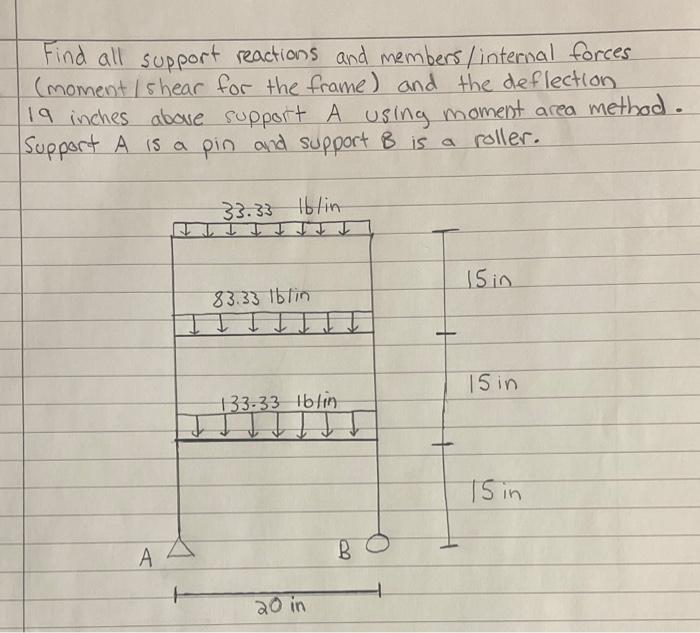 Find all support reactions and members/internal forces
(moment/shear for the frame) and the deflection
19 inches above support A using moment area method.
Support A is a pin and support B is a roller.
33.33 lb/in
15in
83.33 lb/in
15 in
133.33 lb/in
15 in
A
B
20 in